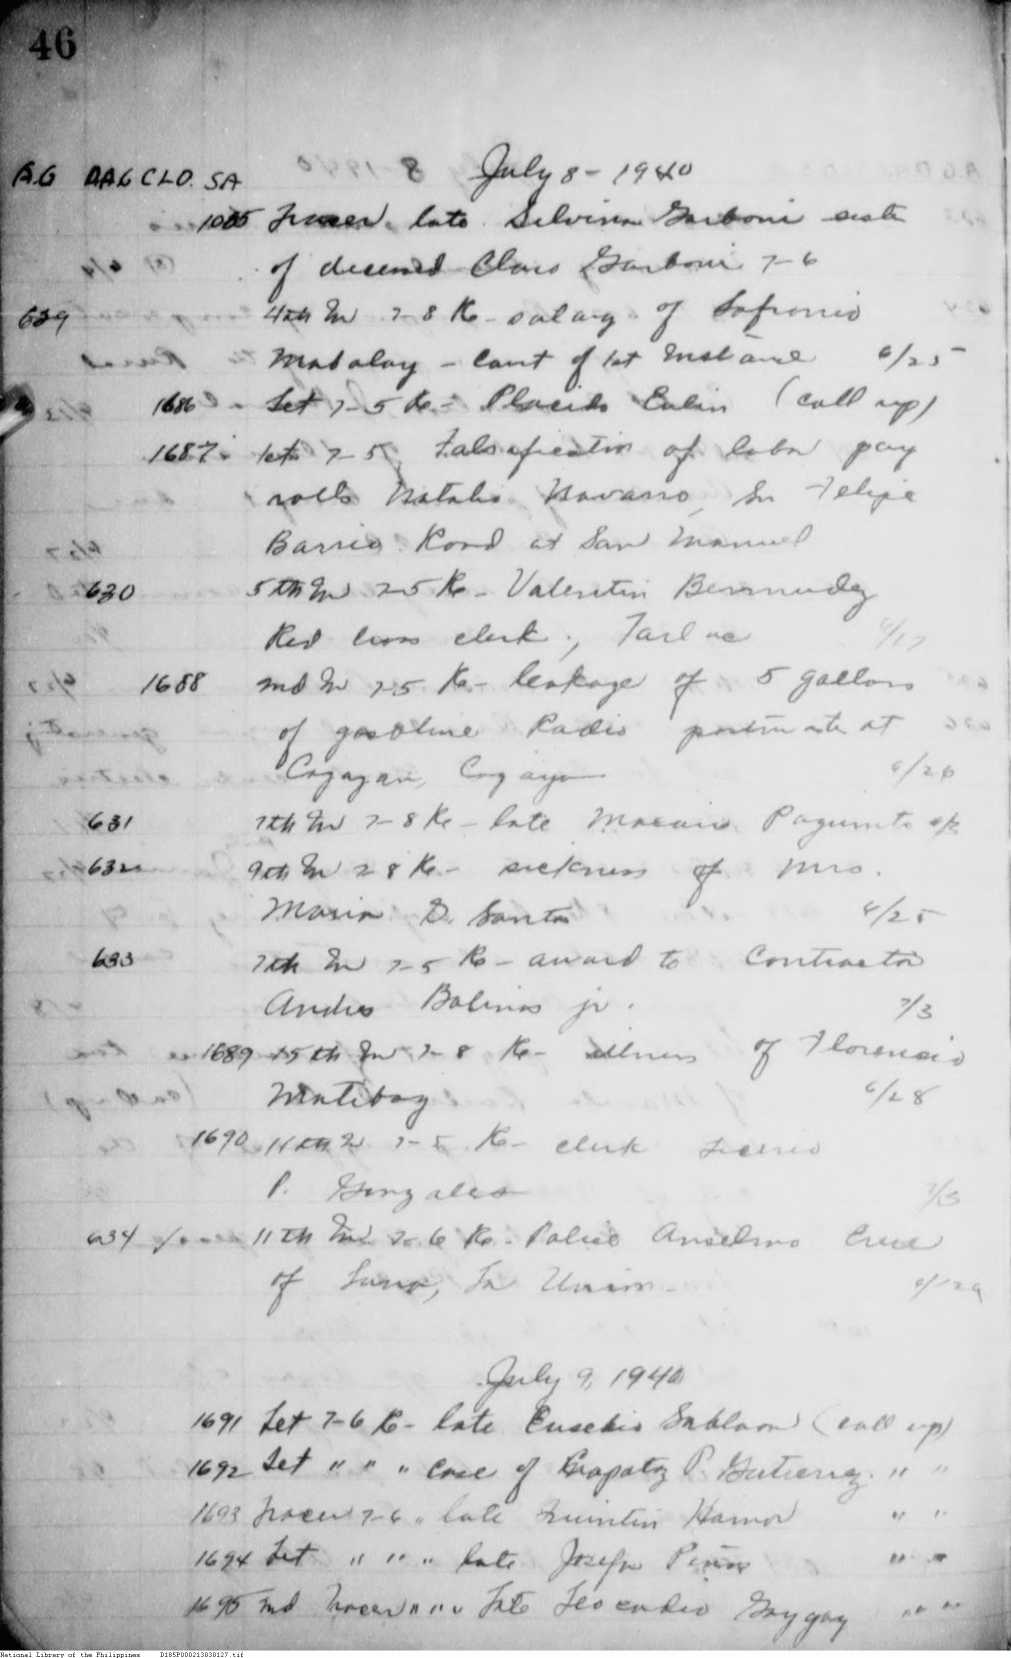 46
July 8 - 1940
A.G DAG CLO. SA
1085 Tracer late Silvina Garboni sister
of deceased Claro Garboni 7-6
629 4th In 7-8 Re - salary of Sofronio
Madalay - Court of 1st Instance 6/25
1686 Let 7-5 Re - Placido Eulin (call up)
1687 let 7-5, Falsification of labor pay
rolls Natalio Navarro, Sn Felipe
Barrio Road at San Manuel
630 5th In 7-5 Re - Valentin Bermudez
Red Cross clerk, Tarlac 6/17
1688 2nd In 7-5 Re - leakage of 5 gallons
of gasoline Radio at
Cagayan, Cagayan 6/26
631 7th In 7-8 Re - late Macario
632 9th In 7-8 Re - sickness of Mrs.
Maria D. Santos 6/25
633 7th In 7-5 Re - award to Contractor
Andres Bolinas jr. 7/3
1689 15th In 7-8 Re - illness of Florencio
Matibag 6/28
1690 11th In 7-5 Re - clerk
P. Gonzales 7/3
634 11th In 7-6 Re - Police Anselmo Cruz
of Luna, La Union - 6/29
July 9, 1940
1691 Let 7-6 Re - late Eusebio Sablaon (call up)
1692 Let " " " case of P. Gutierrez " "
1693 Tracer 7-6 " late Quintin Hamor " "
1694 Let " " " late Josefa " "
1695 2nd Tracer " " " late Leocadio Gaygay " "
National Library of the Philippines D185P000213838127.tif